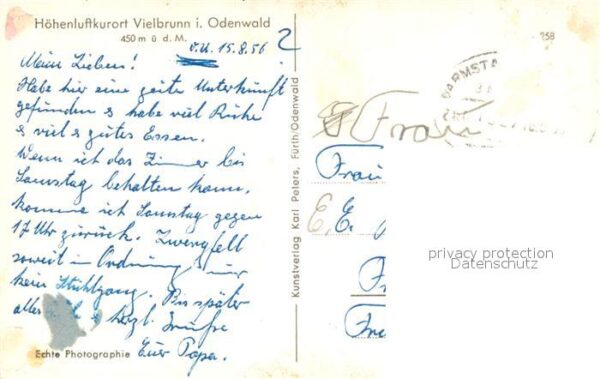 Höhenluftkurort Vielbrunn i. Odenwald
450 m ü. d. M.
15.8.56
2
Meine Lieben!
Habe hier eine gute Unterkunft
gefunden & habe viel Ruhe
& viel & gutes Essen.
Wenn ich das Zimmer bis
Samstag behalten kann,
komme ich Samstag gegen
17 Uhr zurück. Zwergfell
soweit in Ordnung nur
kein Stuhlgang. Bis später
alles & herzl. Grüße
Euer Papa.
Echte Photographie
Kunstverlag Karl Peters, Fürth/Odenwald
258
DARMSTA
Frau
Frau
E. E.
Fr
Fre
privacy protection
Datenschutz